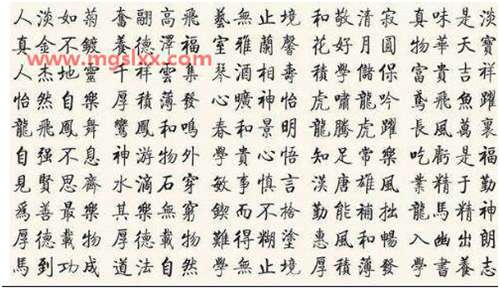 人淡如菊 奮翮高飛 藝無止境 和敬清寂 真味是淡
真金不鍍 養德澤福 室雅蘭馨 花好月圓 物華天寶
www.mgslxx.com
人杰地靈 千祥雲集 琴心 壽 學儲保 富貴吉祥
怡然自樂 厚積薄發 心曠神怡 虎嘯龍吟 鳶飛魚躍
龍飛鳳舞 鸞鳳和鳴 春和景明 龍騰虎躍 長風萬裏
自强不息 神游物外 學貴心悟 知足常樂 吃虧是福
見賢思齊 水滴石穿 敏事慎言 漢唐雄風 業精于勤
為善最樂 其樂無窮 鍥而不捨 勤能補拙 龍馬精神
厚德載物 厚德載物 難得糊塗 惠風和暢 入幽出朗
馬到功成 道法自然 學無止境 厚積薄發 學書養志